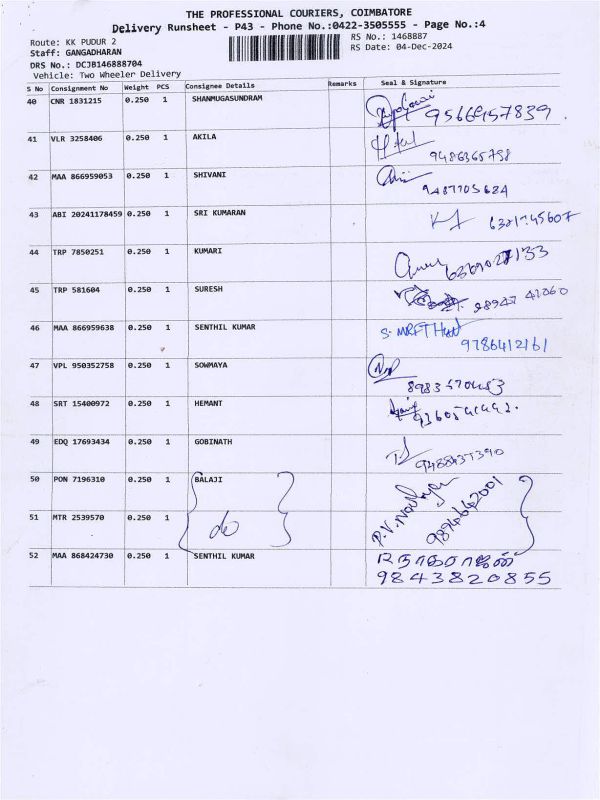 THE PROFESSIONAL COURIERS, COIMBATORE
Delivery Runsheet - P43 - Phone No.:0422-3505555 - Page No.:4
Route: KK PUDUR 2
RS No.: 1468887
Staff: GANGADHARAN
RS Date: 04-Dec-2024
DRS No.: DCJB146888704
Vehicle: Two Wheeler Delivery
S No Consignment No Weight PCS Consignee Details Remarks Seal & Signature
40 CNR 1831215 0.250 1 SHANMUGASUNDRAM 9566957839
41 VLR 3258406 0.250 1 AKILA 9486365798
42 MAA 866959053 0.250 1 SHIVANI 9487705684
43 ABI 20241178459 0.250 1 SRI KUMARAN
44 TRP 7850251 0.250 1 KUMARI
45 TRP 581604 0.250 1 SURESH
46 MAA 866959638 0.250 1 SENTHIL KUMAR 9786412161
47 VPL 950352758 0.250 1 SOWMAYA
48 SRT 15400972 0.250 1 HEMANT
49 EDQ 17693434 0.250 1 GOBINATH 9488437390
50 PON 7196310 0.250 1 BALAJI 9894662001
51 MTR 2539570 0.250 1 do
52 MAA 868424730 0.250 1 SENTHIL KUMAR
9843820855